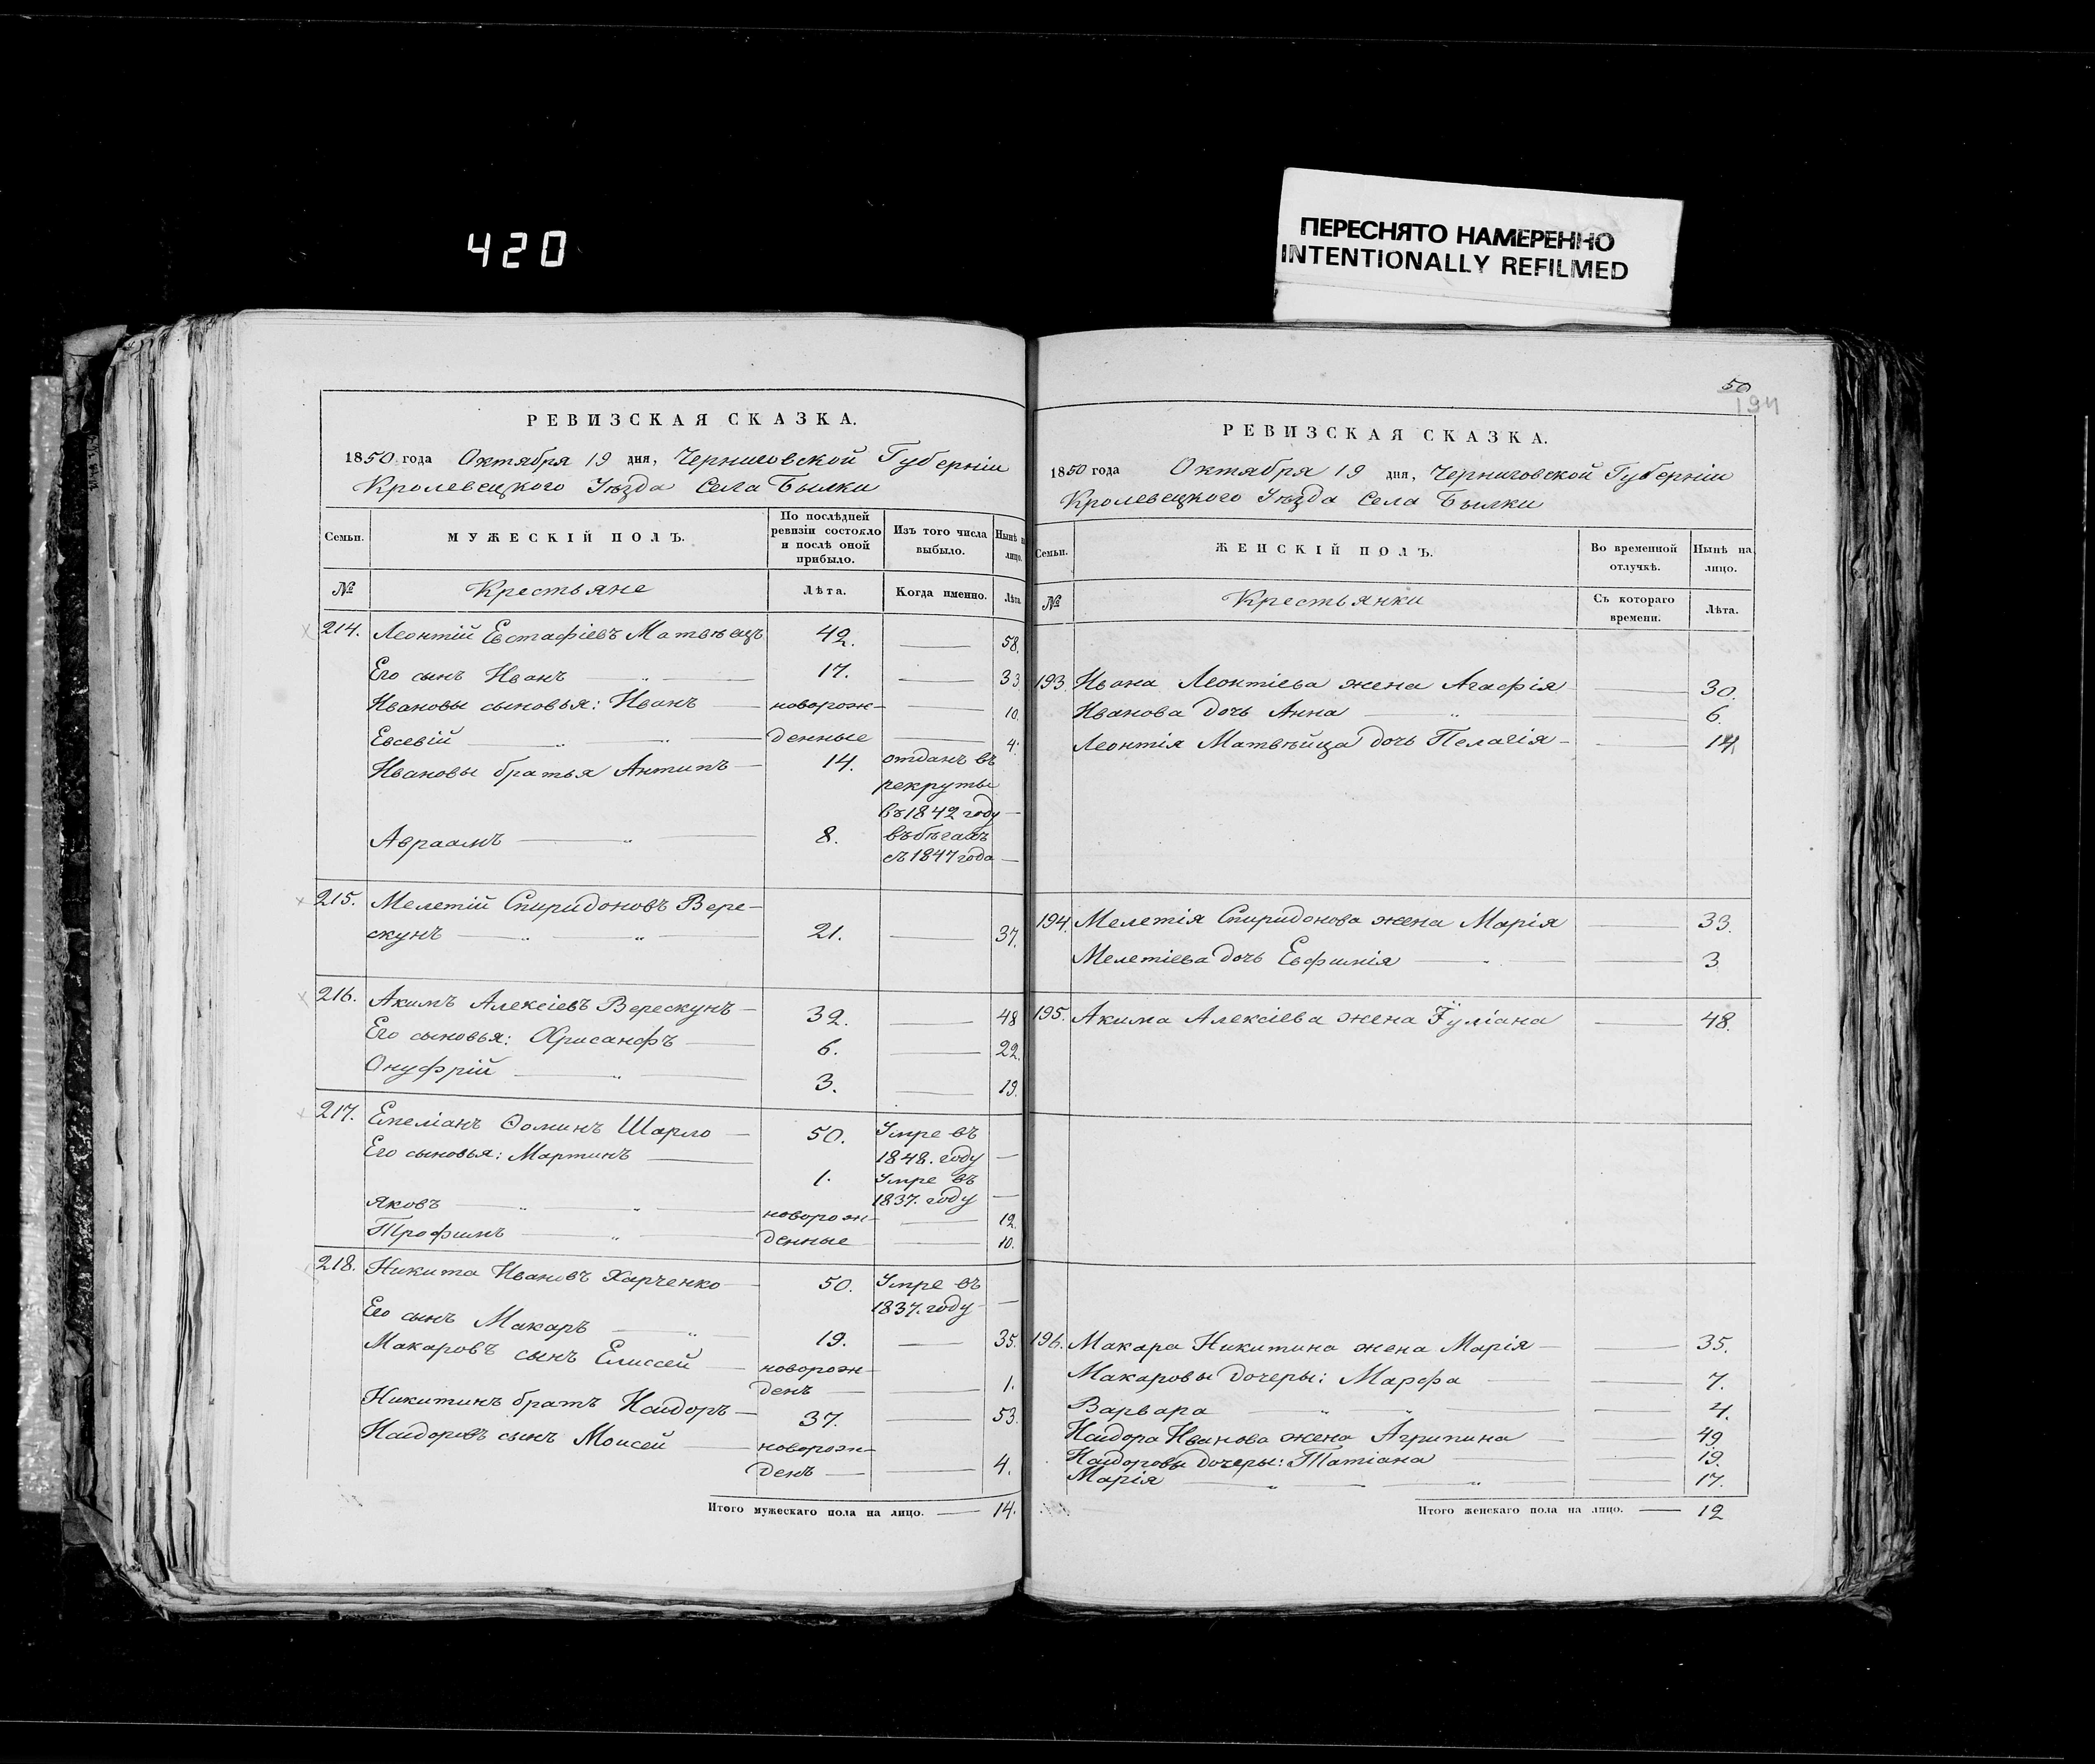 420
ПЕРЕСНЯТО НАМЕРЕННО
INTENTIONALLY REFILMED
РЕВИЗСКАЯ СКАЗКА.
1850 года Октября 19 дня, Черниговской Губерніи
Кролевецкого Уѣзда Села Былки
Семьи. МУЖЕСКІЙ ПОЛЪ. По послѣдней ревизіи состояло и послѣ оной прибыло. Изъ того числа выбыло. Нынѣ на лицо.
№ Крестьяне Лѣта. Когда именно. Лѣта.
214. Леонтій Евстафіевъ Матвѣецъ 42. — 58.
Его сынъ Иванъ — „ — 17. — 33
Ивановы сыновья: Иванъ — новорож- — 10.
Евсевій — „ — „ — денные — 4.
Ивановы братья Антипъ — 14. отданъ въ
рекруты
въ 1842 году —
Авраамъ — „ — 8. въ бѣгахъ
съ 1847 года —
215. Мелетій Спиридоновъ Вере-
скунъ — „ — „ — 21. — 37.
216. Акимъ Алексіевъ Верескунъ — 32. — 48
Его сыновья: Хрисанфъ — 6. — 22.
Онуфрій — „ — 3. — 19.
217. Емеліанъ Ѳоминъ Шарло — 50. Умре въ
1848. году —
Его сыновья: Мартинъ — 1. Умре въ
1837. году —
Яковъ — „ — „ — новорож- — 12.
Трофимъ — „ — денные — 10.
218. Никита Ивановъ Харченко — 50. Умре въ
1837. году — —
Его сынъ Макаръ — „ — 19. — 35.
Макаровъ сынъ Елиссей — новорож-
денъ — — 1.
Никитинъ братъ Исидоръ — 37. — 53.
Исидоровъ сынъ Моисей — новорож-
денъ — — 4.
Итого мужескаго пола на лицо. — 14.
50
194
РЕВИЗСКАЯ СКАЗКА.
1850 года Октября 19 дня, Черниговской Губерніи
Кролевецкого Уѣзда Села Былки
Семьи. ЖЕНСКІЙ ПОЛЪ. Во временной отлучкѣ. Нынѣ на лицо.
№ Крестьянки Съ котораго времени. Лѣта.
193. Ивана Леонтіева жена Агафія — 30.
Иванова дочь Анна — „ — — 6.
Леонтія Матвѣйца дочь Пелагія — — 14.
194. Мелетія Спиридонова жена Марія — 33.
Мелетіева дочь Евфимія — „ — — 3
195. Акима Алексіева жена Іуліана — 48.
196. Макара Никитина жена Марія — — 35.
Макаровы дочеры: Марфа — — 7.
Варвара — „ — „ — — 4.
Исидора Иванова жена Агрипина — — 49
Исидоровы дочеры: Татіана — — 19.
Марія — „ — „ — — 17.
Итого женскаго пола на лицо. — 12